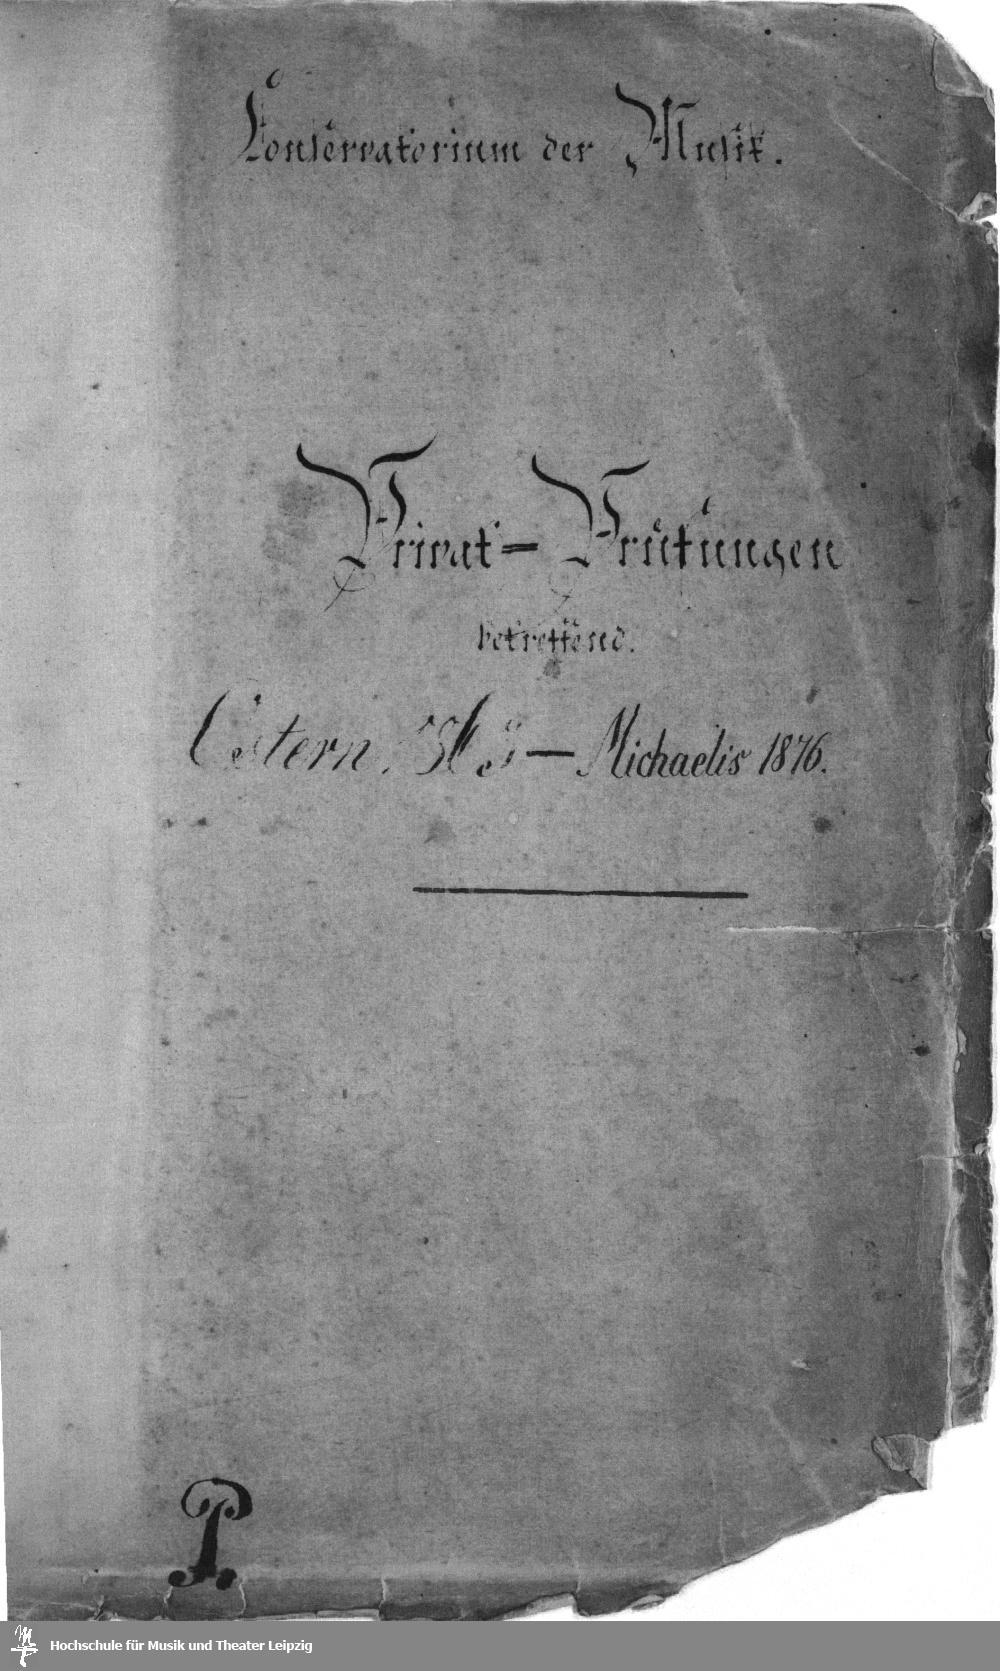 Conservatorium der Musik.
Privat-Prüfungen
betreffend.
Ostern — Michaelis 1876.
P.
Hochschule für Musik und Theater Leipzig